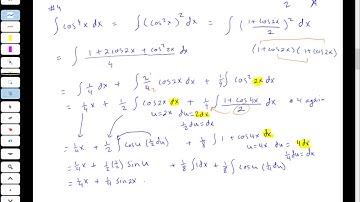 #4
2
∫cos⁴x dx = ∫(cos²x)² dx = ∫(1+cos2x / 2)² dx
= ∫ 1+2cos2x+cos²2x / 4 dx (1+cos2x)(1+cos2x)
= ∫ 1/4 dx + ∫ 2/4 cos2x dx + 1/4 ∫ cos² 2x dx
= 1/4 x + 1/2 ∫ cos2x dx + 1/4 ∫ 1+cos4x / 2 dx
u=2x du=2dx
1/2 du=dx
= 1/4 x + 1/2 ∫ cosu (1/2 du) + 1/8 ∫ 1 + cos4x dx
u=4x du=4dx
1/4 du=dx
= 1/4 x + 1/2 (1/2) sin u + 1/8 ∫ 1dx + 1/8 ∫ cosu (1/4 du)
= 1/4 x + 1/4 sin2x